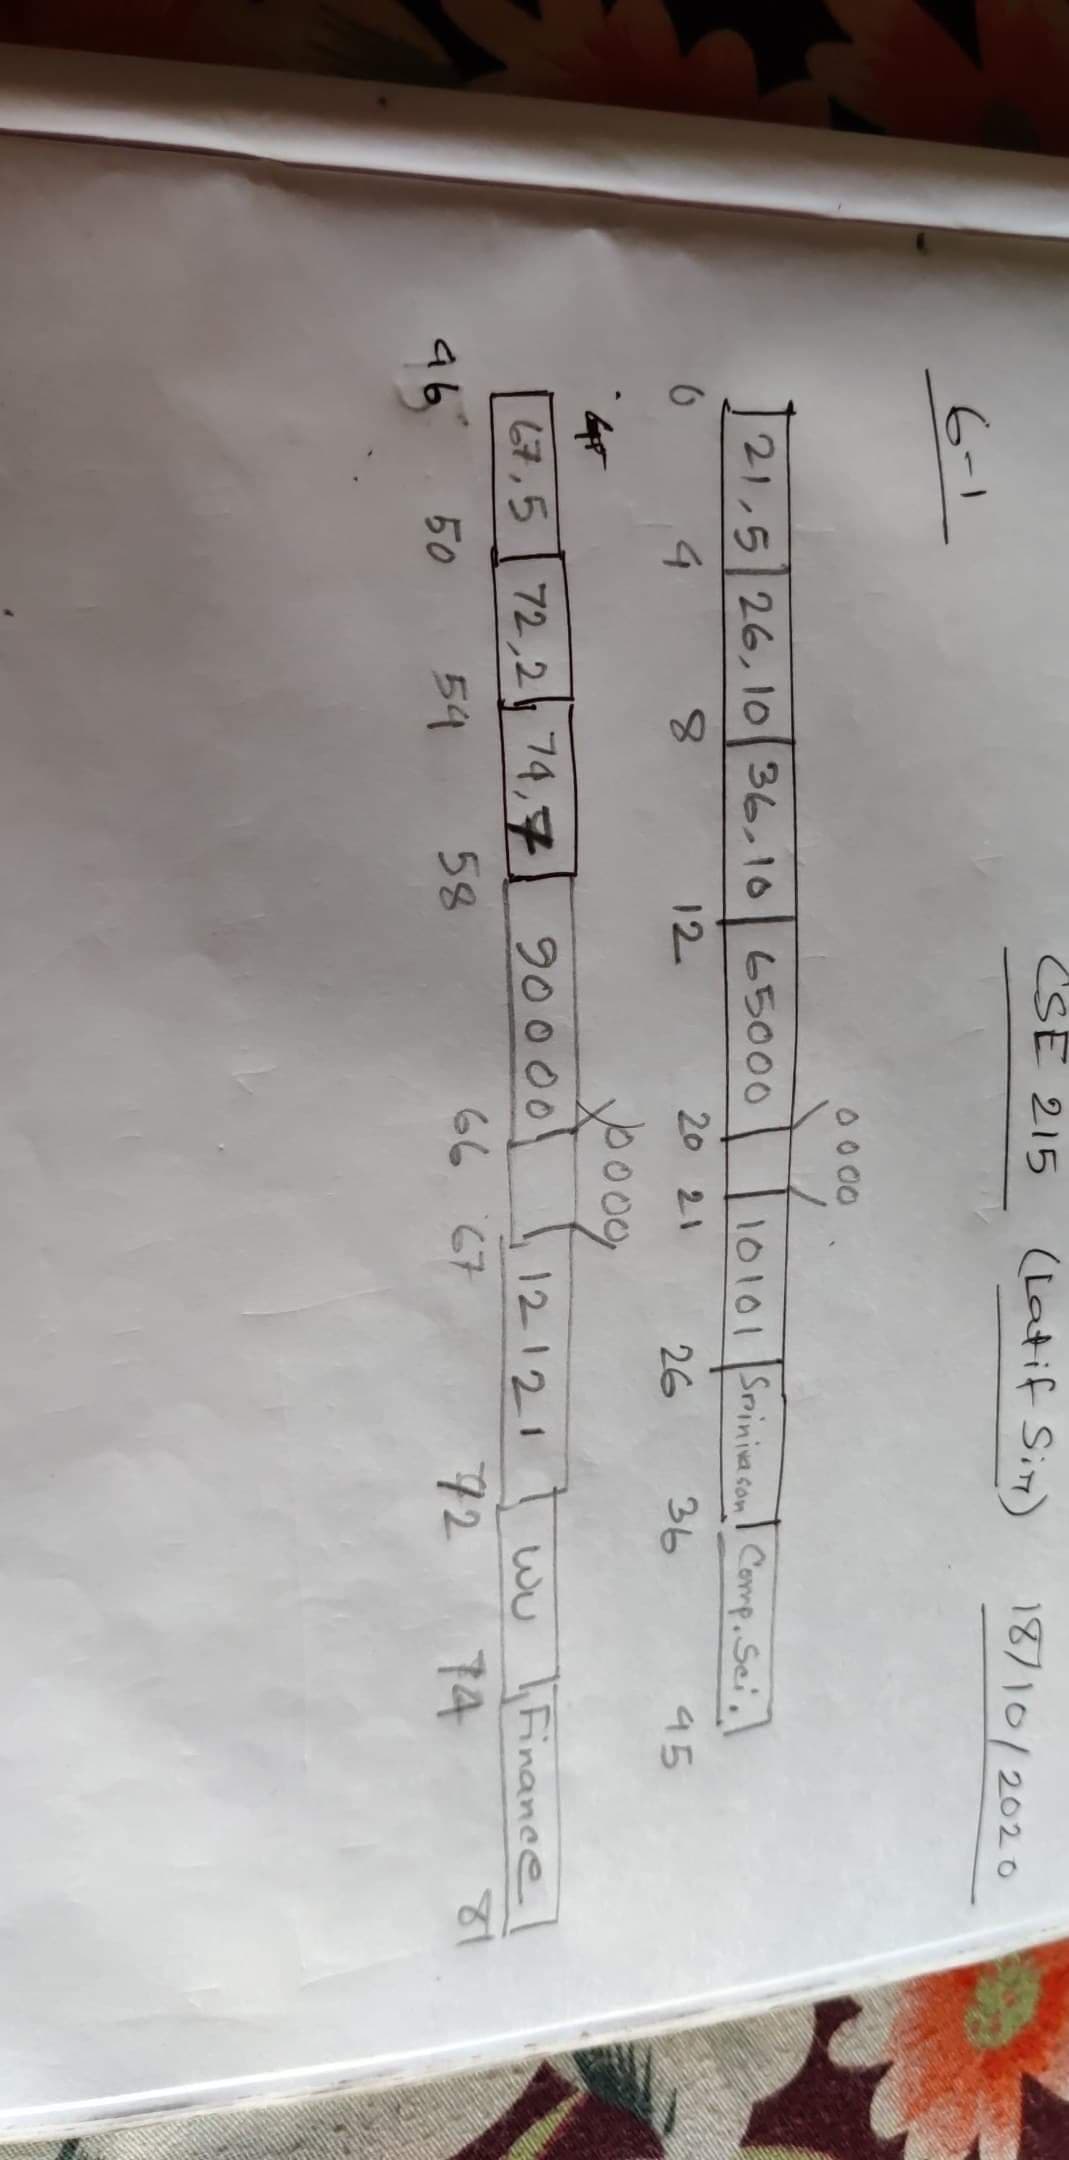 CSE 215 (Latif Sir) 18/10/2020
6-1
0000
21,5 26,10 36,10 65000 10101 Srinivasan Comp. Sci.
0 4 8 12 20 21 26 36 45
0000
67,5 72,2 74,7 90000 12121 WU Finance
46 50 54 58 66 67 72 74 81